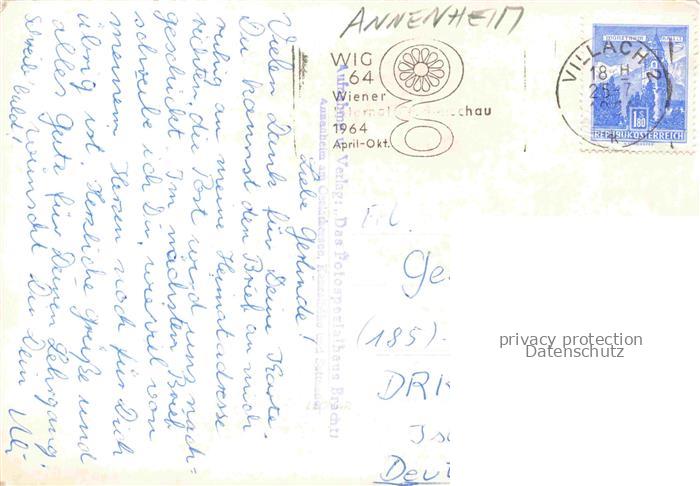 ANNENHEIM
WIG
64
Wiener
schau
1964
April-Okt.
VILLACH 2
18-H
25-7
REPUBLIK ÖSTERREICH
1.80
Liebe Gerlinde!
Vielen Dank für Deine Karte.
Du kannst den Brief an mich
ruhig an meine Heimatadresse
richten, die Post wird uns nach-
geschickt. Im nächsten Brief
schreibe ich Dir, wieviel von
meinem Herzen noch für Dich
übrig ist. Herzliche Grüße und
alles Gute für Deinen Lehrgang
wünscht Dir Dein Uli
Schreib bald!
Aufnahme u. Verlag: "Das Fotospezialhaus Brecht"
Annenheim am Ossiachersee,
Frl.
Ge
(185)
DRK
Deu
privacy protection
Datenschutz